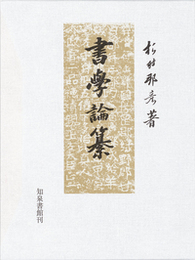 杉村邦彦著
書學論纂
知泉書館刊